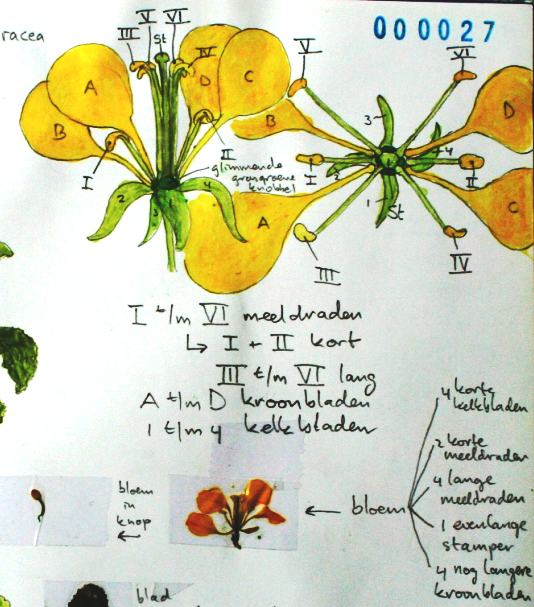 racea
000027
III V VI
St
IV
V
VI
A
B
D
C
B
3
D
I
II
I
2
4
II
glimmende
grasgroene
knobbel
2
3
4
A
1
St
C
III
IV
I t/m VI meeldraden
↳ I + II kort
III t/m VI lang
A t/m D kroonbladen
1 t/m 4 kelkbladen
4 korte
kelkbladen
2 korte
meeldraden
4 lange
meeldraden
1 evenlange
stamper
4 nog langere
kroonbladen
bloem
in
knop
←
← bloem
blad